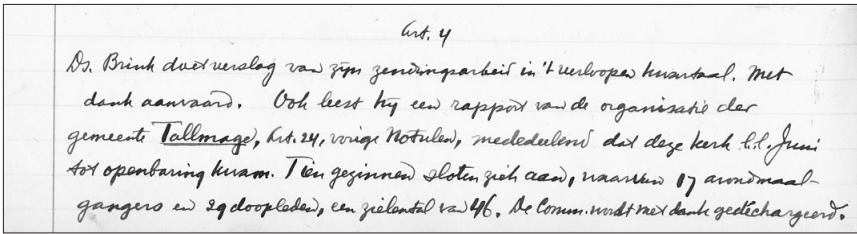 Art. 4
Ds. Brink doet verslag van zijn zendingsarbeid in 't verloopen kwartaal. Met
dank aanvaard. Ook leest hij een rapport van de organisatie der
gemeente Tallmage, Art. 24, vorige Notulen, mededeelend dat deze kerk l.l. Juni
tot openbaring kwam. Tien gezinnen sloten zich aan, waarvan 17 avondmaal-
gangers en 29 doopleden, een zielental van 46. De Comm. wordt met dank gedechargeerd.